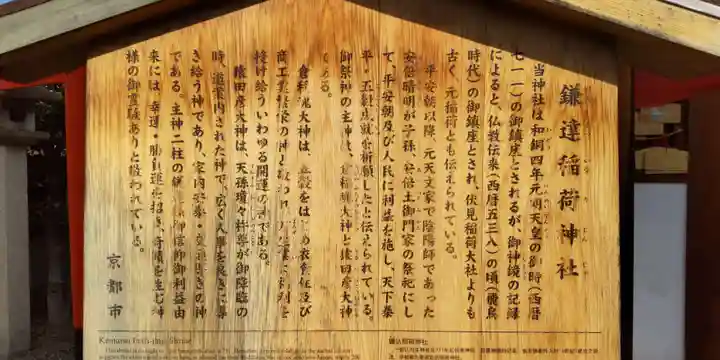 鎌達稲荷神社
当神社は和銅四年元明天皇の御時(西暦
七一一)の御鎮座とされるが、御神鏡の記録
によると、仏教伝来(西暦五三八)の頃(飛鳥
時代)の御鎮座とされ、伏見稲荷大社よりも
古く、元稲荷とも伝えられている。
平安朝以降、元天文家で陰陽師であった
安倍晴明が子孫、安倍土御門家の祭祀にし
て、平安朝及び人民に利益を施し、天下泰
平・五穀成就を祈願したと伝えられている。
御祭神の主神は、倉稲魂大神と猿田彦大神
である。
倉稲魂大神は、五穀をはじめ衣食住及び
商工業繁栄の神と
授け給ういわゆる開運の神である。
猿田彦大神は、天孫瓊々杵尊が御降臨の
時、道案内された神で、広く人事を良きに導
き給う神であり、家内安泰・交通
の神
である。主神二柱の
御信仰御利益由
来には、幸運・勝負運を招き、奇蹟を生む神
様の御霊験ありと謳われている。
京都市
鎌达稲荷神社